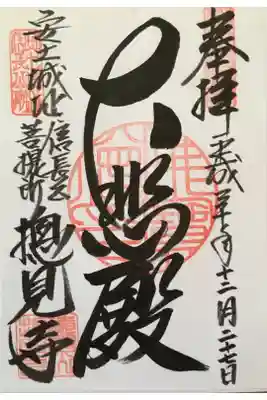 奉拝
平成二十年十二月二十七日
大悲殿
安土城址信長公
菩提所
摠見寺